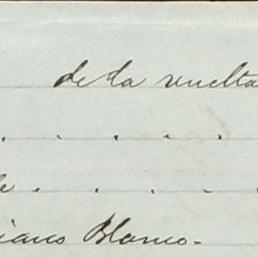 de la vuelta
. . . .
le . . . .
iano Blanco.